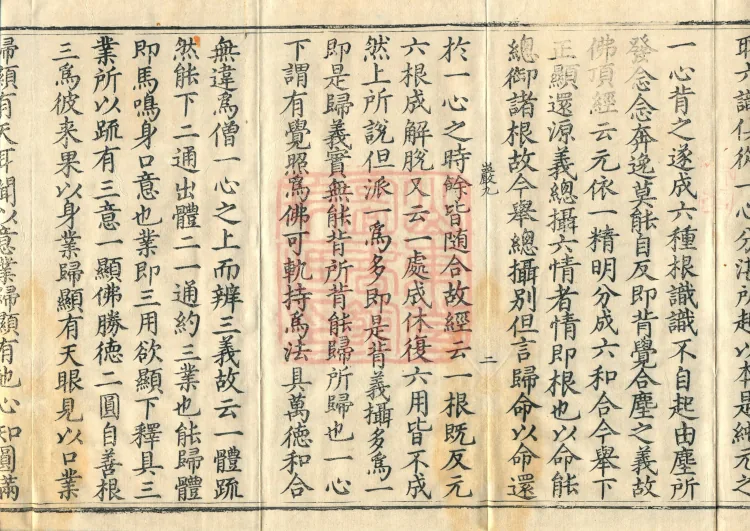 聦六識但從一心分湛所起以本是純元之
一心背之遂成六種根識識不自起由塵所
發念念奔逸莫能自反即背覺合塵之義故
佛頂經云元依一精明分成六和合今舉下
正顯還源義總攝六情者情即根也以命能
總御諸根故今舉總攝別但言歸命以命還
嚴九
二
於一心之時餘皆随合故經云一根既反元
六根成解脫又云一處成休復六用皆不成
然上所說但派一爲多即是背義攝多爲一
即是歸義實無能背所背能歸所歸也一心
下謂有覺照爲佛可軌持爲法具萬德和合
無違爲僧一心之上而辨三義故云一體䟽
然能下二通出體二一通約三業也能歸體
即馬鳴身口意也業即三用欲顯下釋具三
業所以䟽有三意一顯佛勝德二圓自善根
三爲彼来果以身業歸顯有天眼見以口業
歸顯有天耳聞以意業歸顯有他心知圓滿